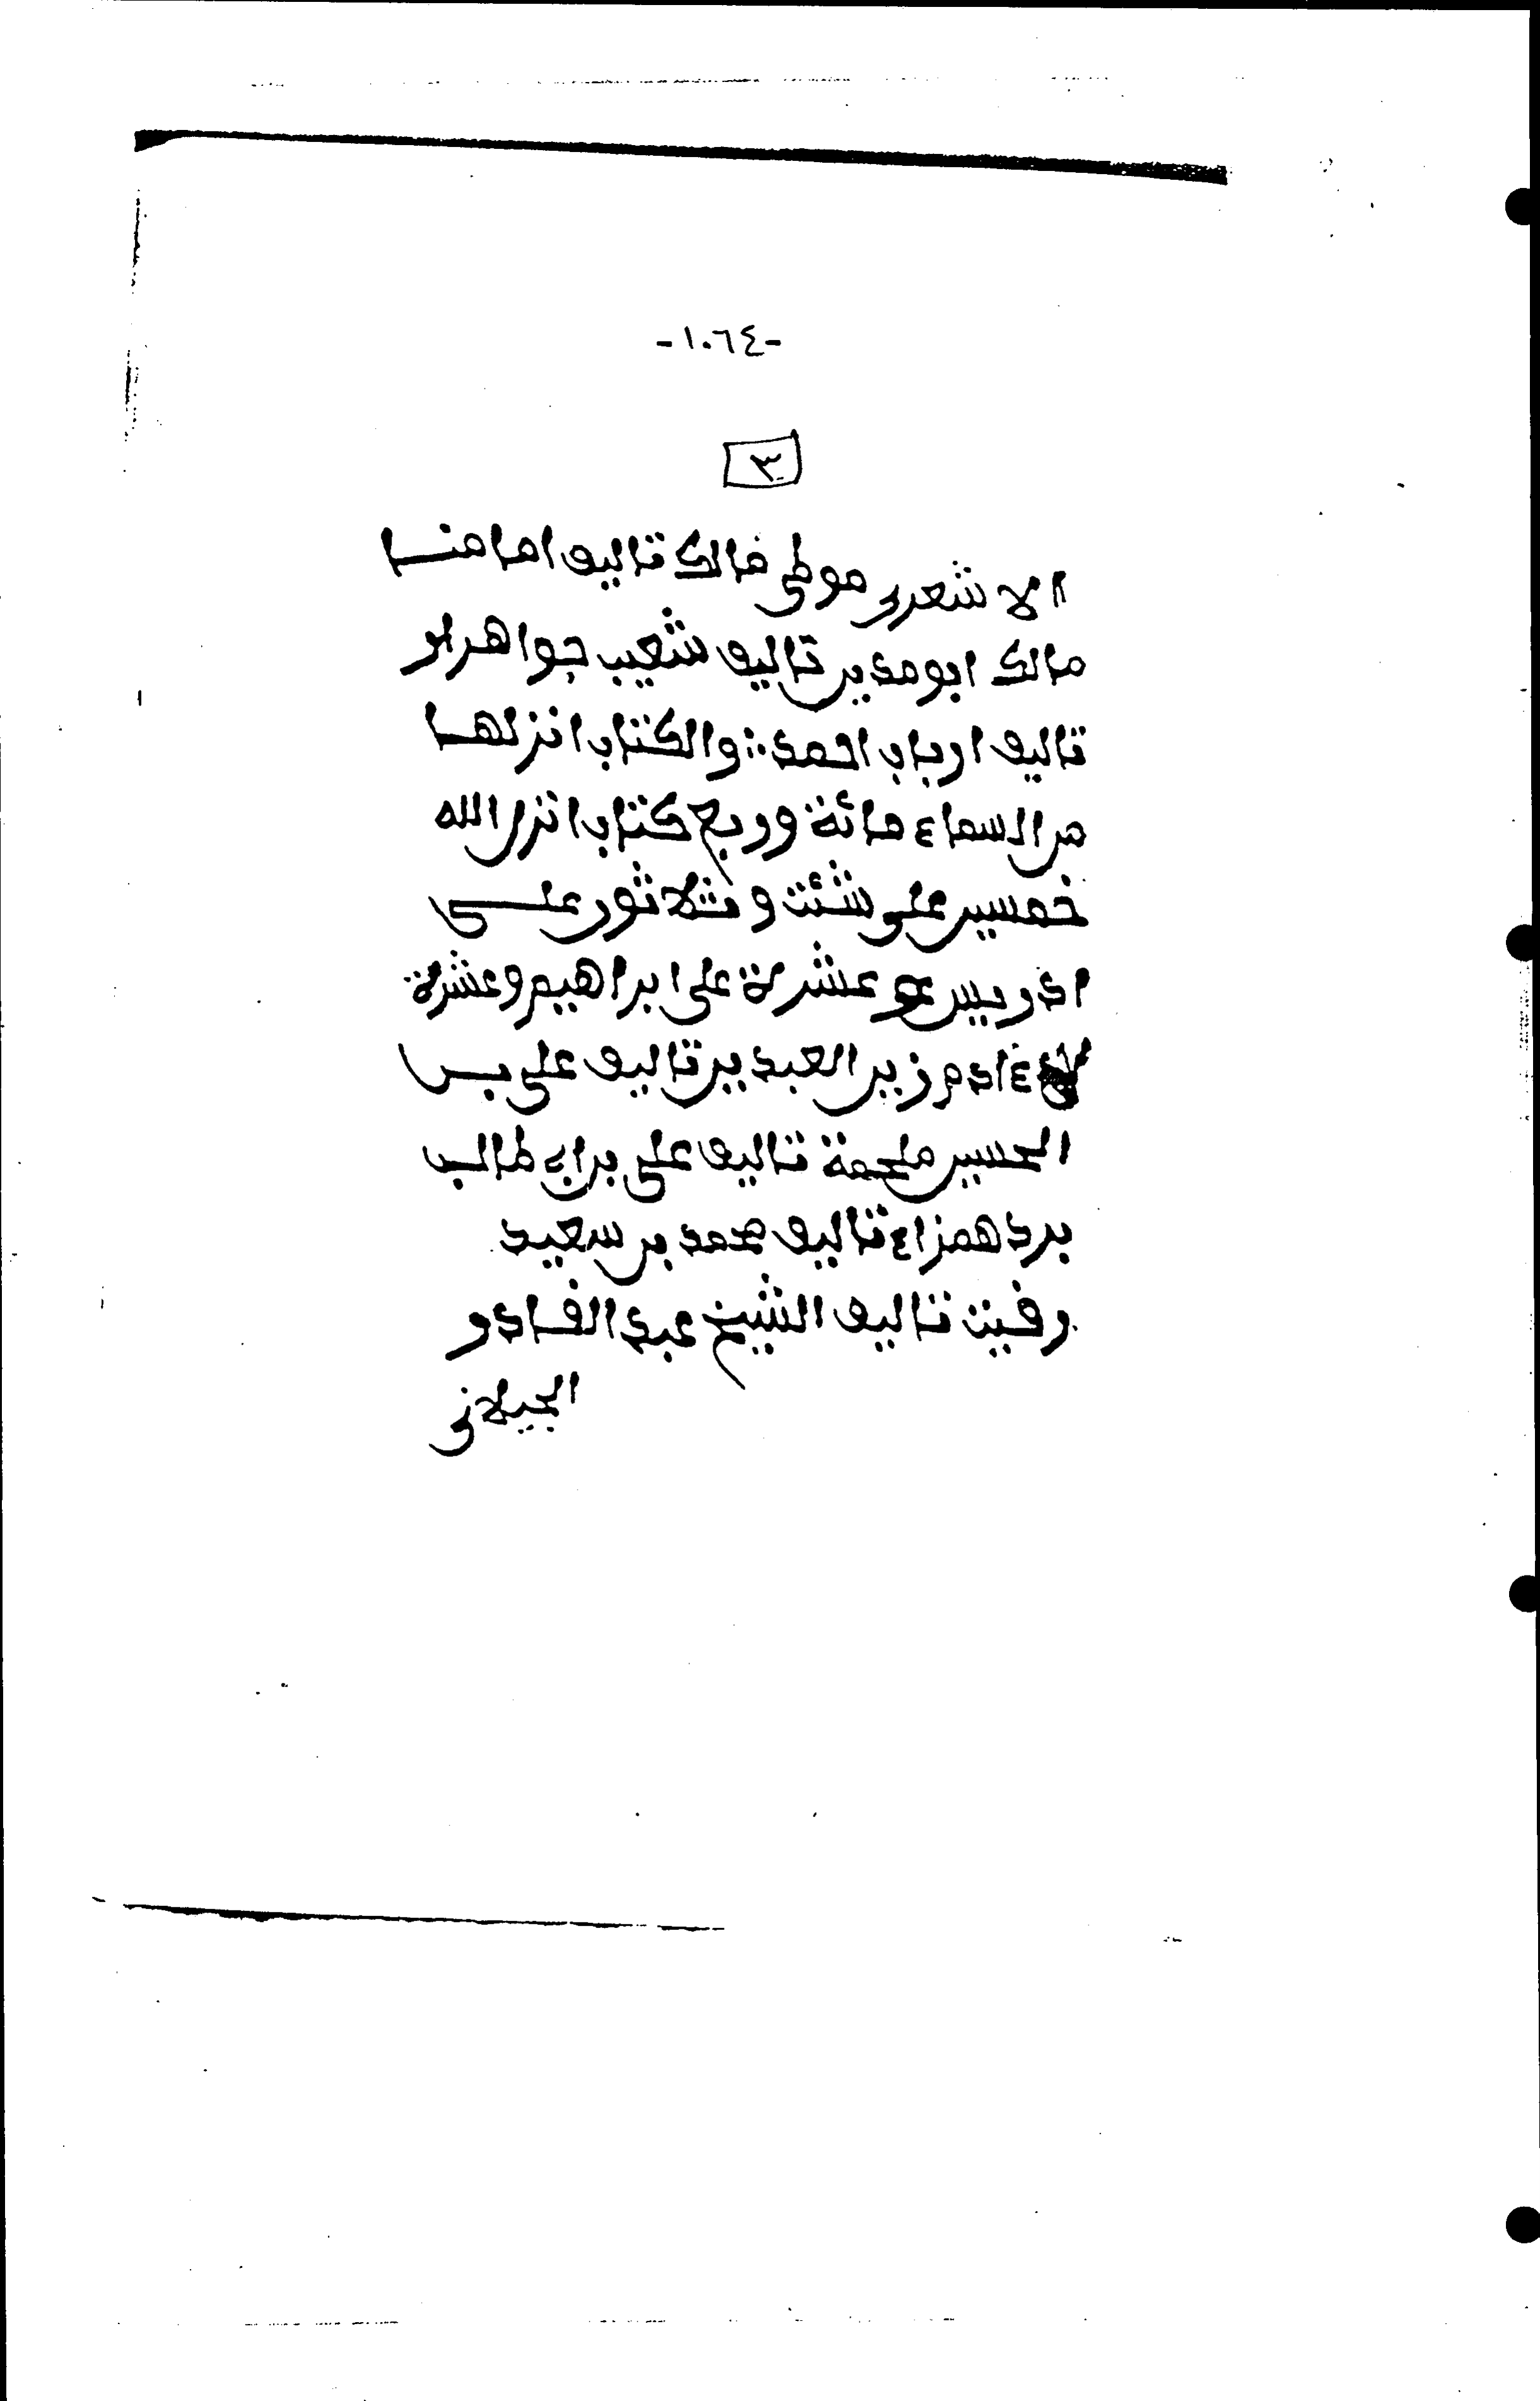 -١٠٦٤-
٣
الاشعرى موطى مالك تاليف امامنا
مالك ابومدين تاليف شعيب جواهر
تاليف ارباب احمد: والكتاب انزلها
من السماء مائة وربع كتاب انزل الله
خمسين على شئت وثلاثون على
ادريس عشرة على ابراهيم وعشرة
ءادم زين العبدين تاليف على بن
الحسين ملحمة تاليف على بن ابى طالب
برد همزاء تاليف محمد بن سعيد
رفيت تاليف الشيخ عبد القادر
الجيلانى